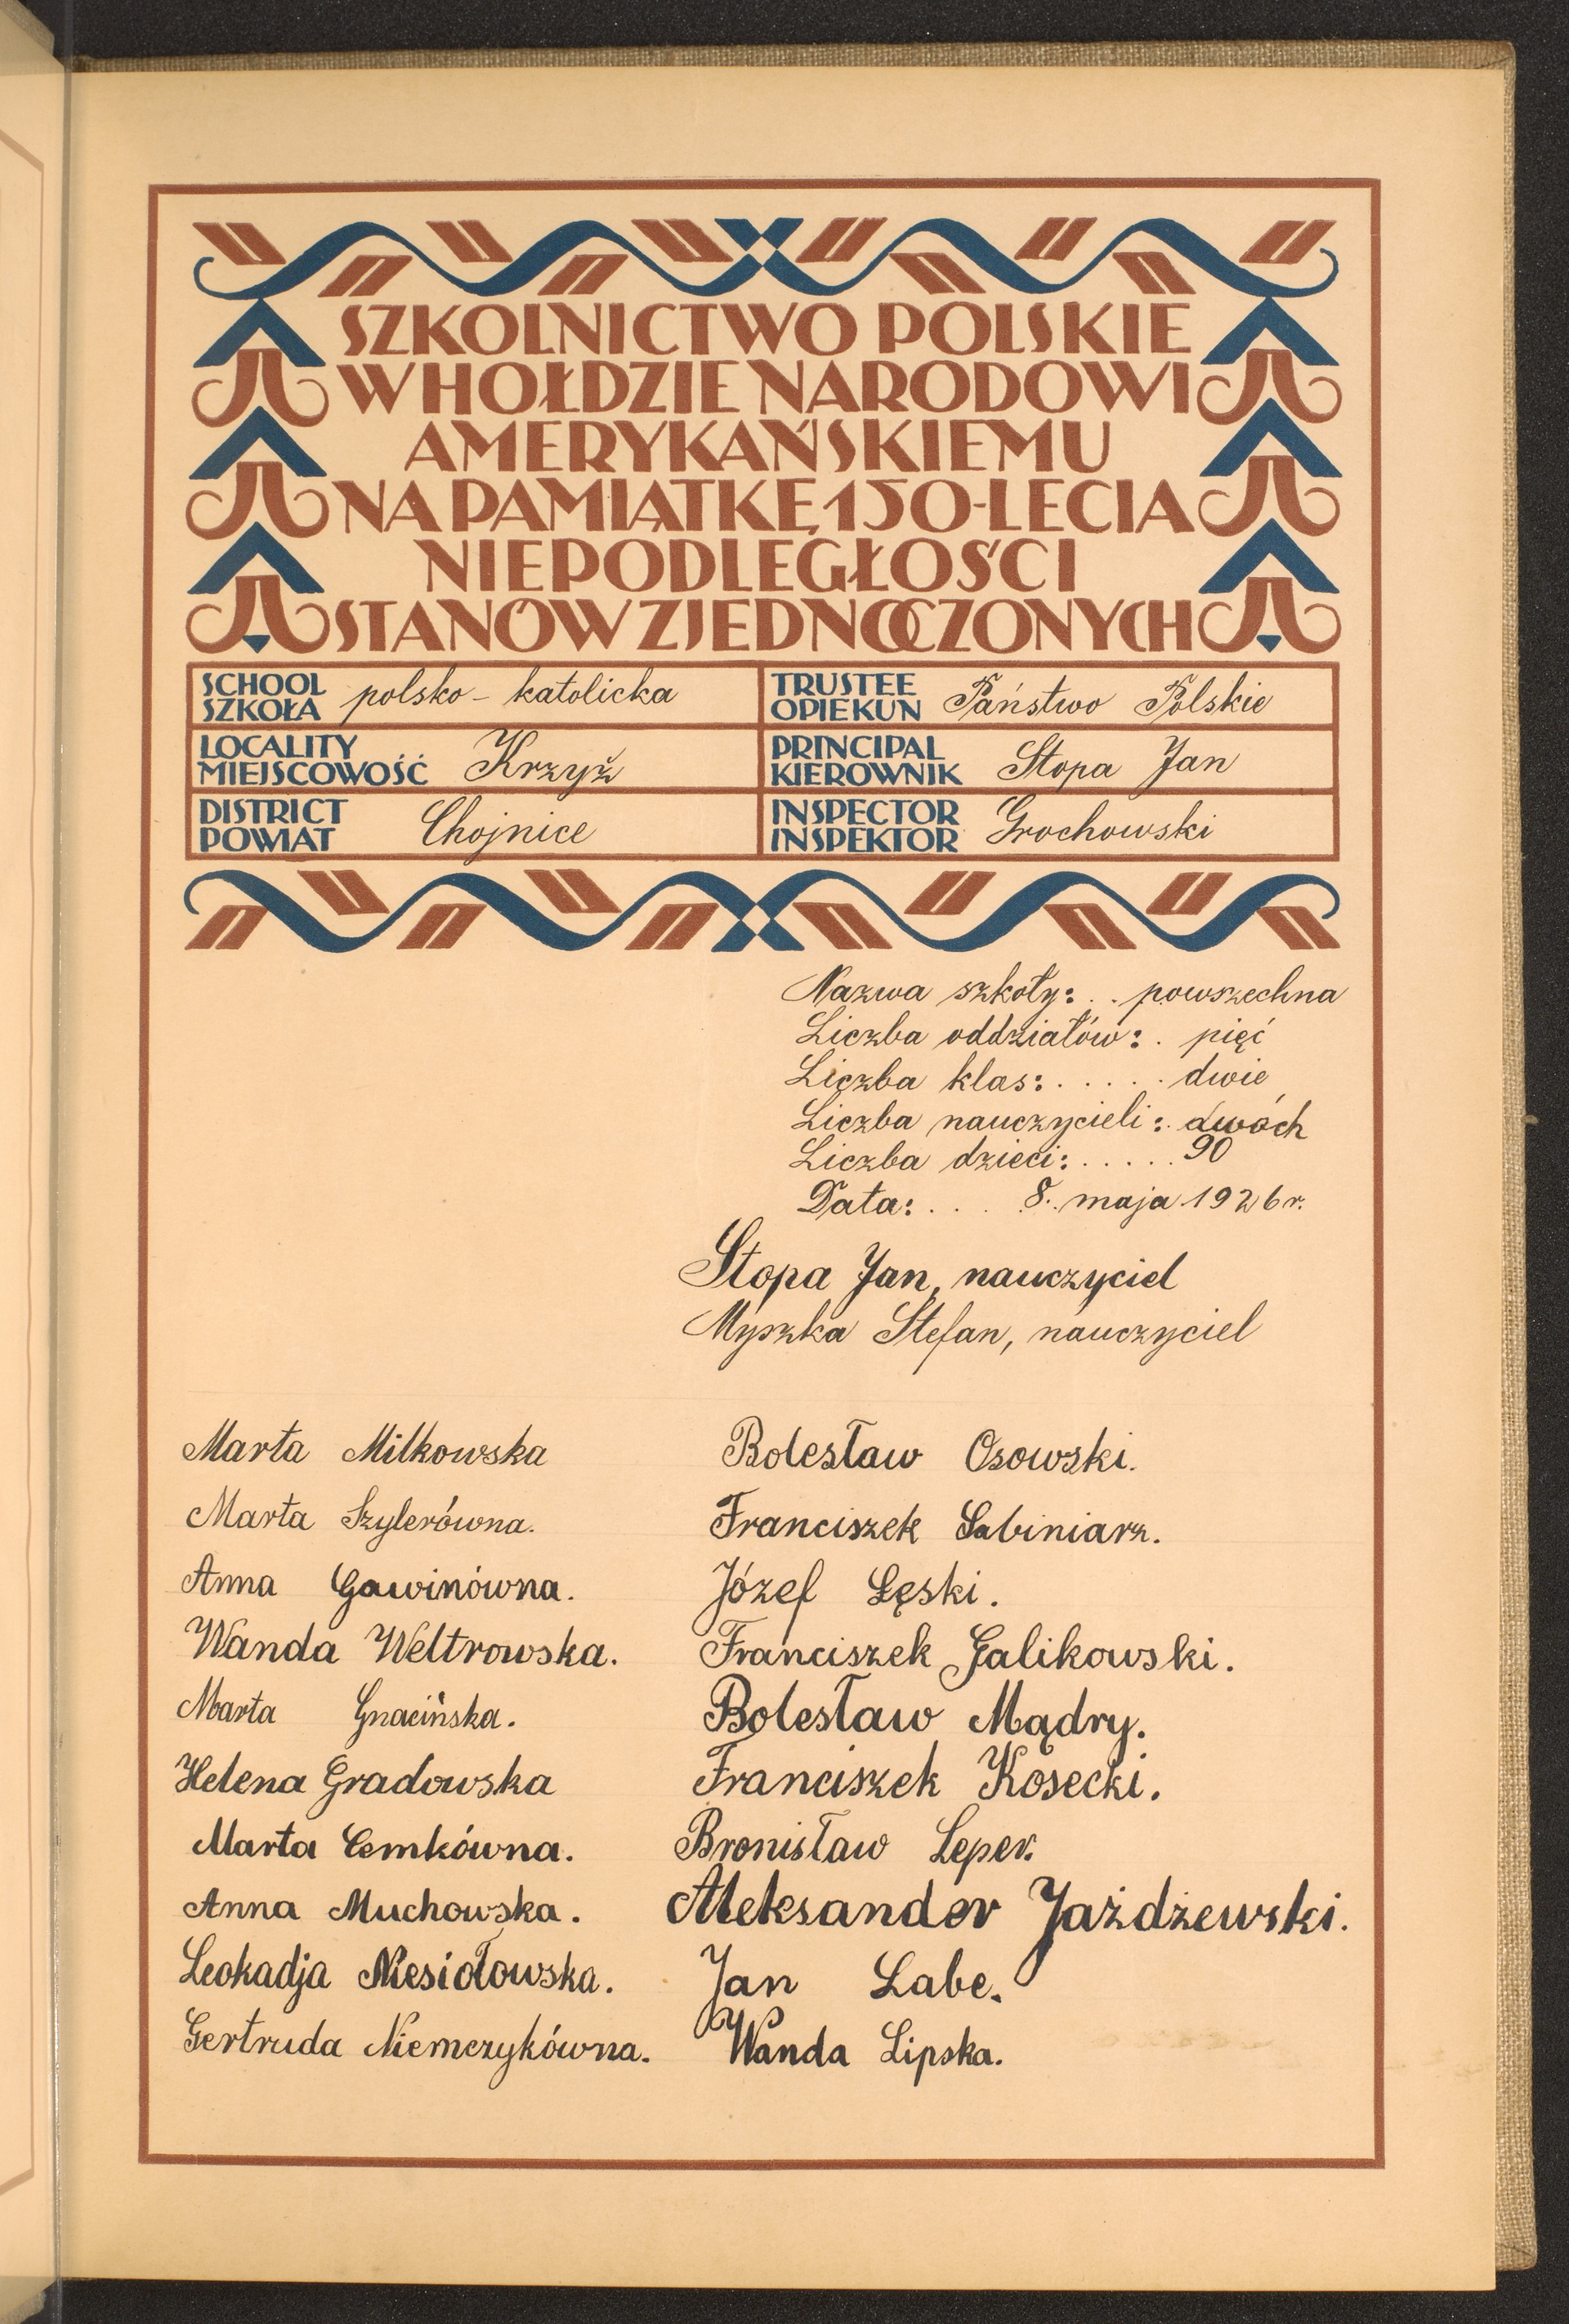 SZKOLNICTWO POLSKIE
W HOŁDZIE NARODOWI
AMERYKAŃSKIEMU
NA PAMIĄTKĘ 150-LECIA
NIEPODLEGŁOŚCI
STANÓW ZJEDNOCZONYCH
SCHOOL
SZKOŁA polsko-katolicka
TRUSTEE
OPIEKUN Państwo Polskie
LOCALITY
MIEJSCOWOŚĆ Krzyż
PRINCIPAL
KIEROWNIK Stopa Jan
DISTRICT
POWIAT Chojnice
INSPECTOR
INSPEKTOR Grochowski
Nazwa szkoły: . . powszechna
Liczba oddziałów: . pięć
Liczba klas: . . . . . dwie
Liczba nauczycieli: dwóch
Liczba dzieci: . . . . . 90
Data: . . . 8. maja 1926 r.
Stopa Jan, nauczyciel
Myszka Stefan, nauczyciel
Marta Milkowska
Marta Szylerówna.
Anna Gawinówna.
Wanda Weltrowska.
Marta Gnacińska.
Helena Gradowska
Marta Cemkówna.
Anna Muchowska.
Leokadja Niesiołowska.
Gertruda Niemczykówna.
Bolesław Osowski.
Franciszek Sabiniarz.
Józef Łęski.
Franciszek Galikowski.
Bolesław Mądry.
Franciszek Kosecki.
Bronisław Leper.
Aleksander Jażdżewski.
Jan Labe.
Wanda Lipska.